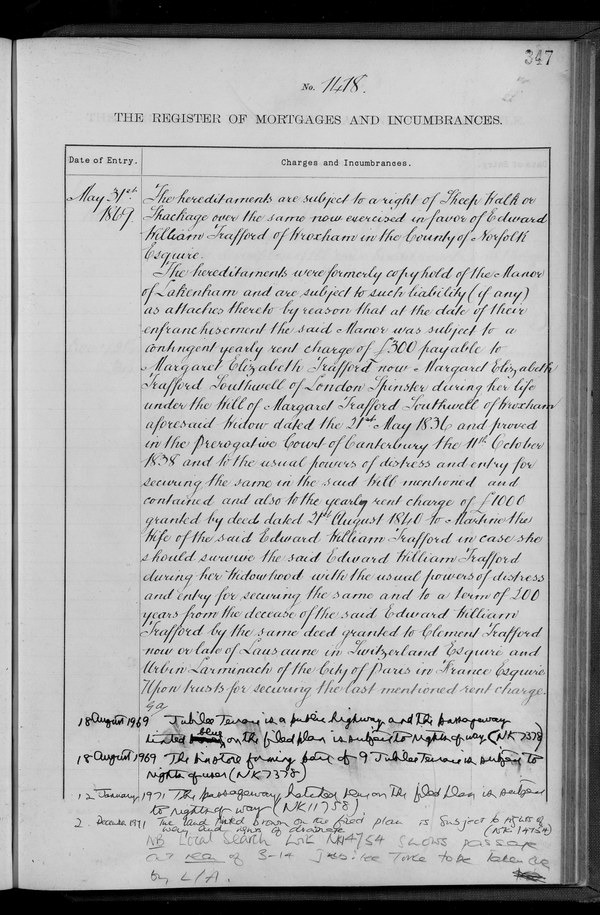 347
No. 1418.
THE REGISTER OF MORTGAGES AND INCUMBRANCES.
Date of Entry.
Charges and Incumbrances.
May 31st
1869.
The hereditaments are subject to a right of Sheep Walk or
Shackage over the same now exercised in favor of Edward
William Trafford of Wroxham in the County of Norfolk
Esquire.
The hereditaments were formerly copyhold of the Manor
of Lakenham and are subject to such liability (if any)
as attaches thereto by reason that at the date of their
enfranchisement the said Manor was subject to a
contingent yearly rent charge of £300 payable to
Margaret Elizabeth Trafford now Margaret Elizabeth
Trafford Southwell of London Spinster during her life
under the Will of Margaret Trafford Southwell of Wroxham
aforesaid Widow dated the 21st May 1836 and proved
in the Prerogative Court of Canterbury the 11th October
1838 and to the usual powers of distress and entry for
securing the same in the said Will mentioned and
contained and also to the yearly rent charge of £1000
granted by deed dated 31st August 1840 to Martine the
Wife of the said Edward William Trafford in case she
should survive the said Edward William Trafford
during her Widowhood with the usual powers of distress
and entry for securing the same and to a term of 200
years from the decease of the said Edward William
Trafford by the same deed granted to Clement Trafford
now or late of Lausanne in Switzerland Esquire and
Urbin Larminach of the City of Paris in France Esquire
Upon trusts for securing the last mentioned rent charge.
18 August 1969 Jubilee Terrace is a public highway and the passageway
tinted blue on the filed plan is subject to rights of way (NK 7378)
18 August 1969 The forming part of 9 Jubilee Terrace is subject to
rights of user (NK 7378)
12 January 1971 The passageway hatched on the filed plan is subject
to rights of way (NK11758)
2 December 1971 The land tinted brown on the filed plan is subject to rights of
way and rights of drainage (NK 14754)
NB Local Search NK14754 shows passage
at rear of 3-14 Jubilee Terrace to be taken over
by L/A.